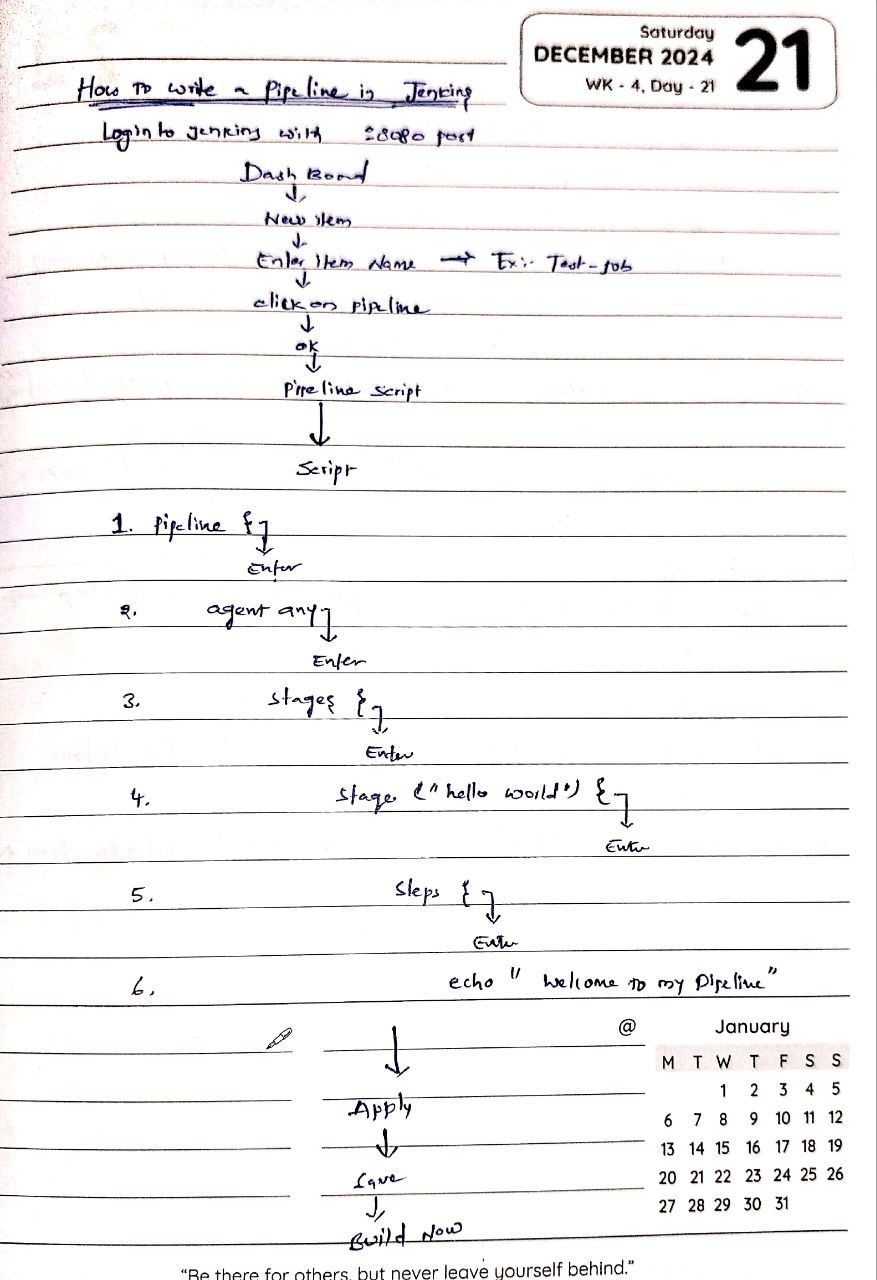 Saturday
DECEMBER 2024
WK - 4, Day - 21
21
How To write a Pipeline in Jenkins
Login to Jenkins with :8080 port
Dash Board
↓
New item
↓
Enter Item Name → Ex:- Test-job
↓
click on pipeline
↓
OK
↓
Pipeline script
↓
Script
1. pipeline {
↓
Enter
2. agent any
↓
Enter
3. stages {
↓
Enter
4. stage ("hello world") {
↓
Enter
5. steps {
↓
Enter
6. echo " Welcome to my Pipeline"
↓
Apply
↓
Save
↓
Build Now
@
January
M T W T F S S
1 2 3 4 5
6 7 8 9 10 11 12
13 14 15 16 17 18 19
20 21 22 23 24 25 26
27 28 29 30 31
"Be there for others, but never leave yourself behind."